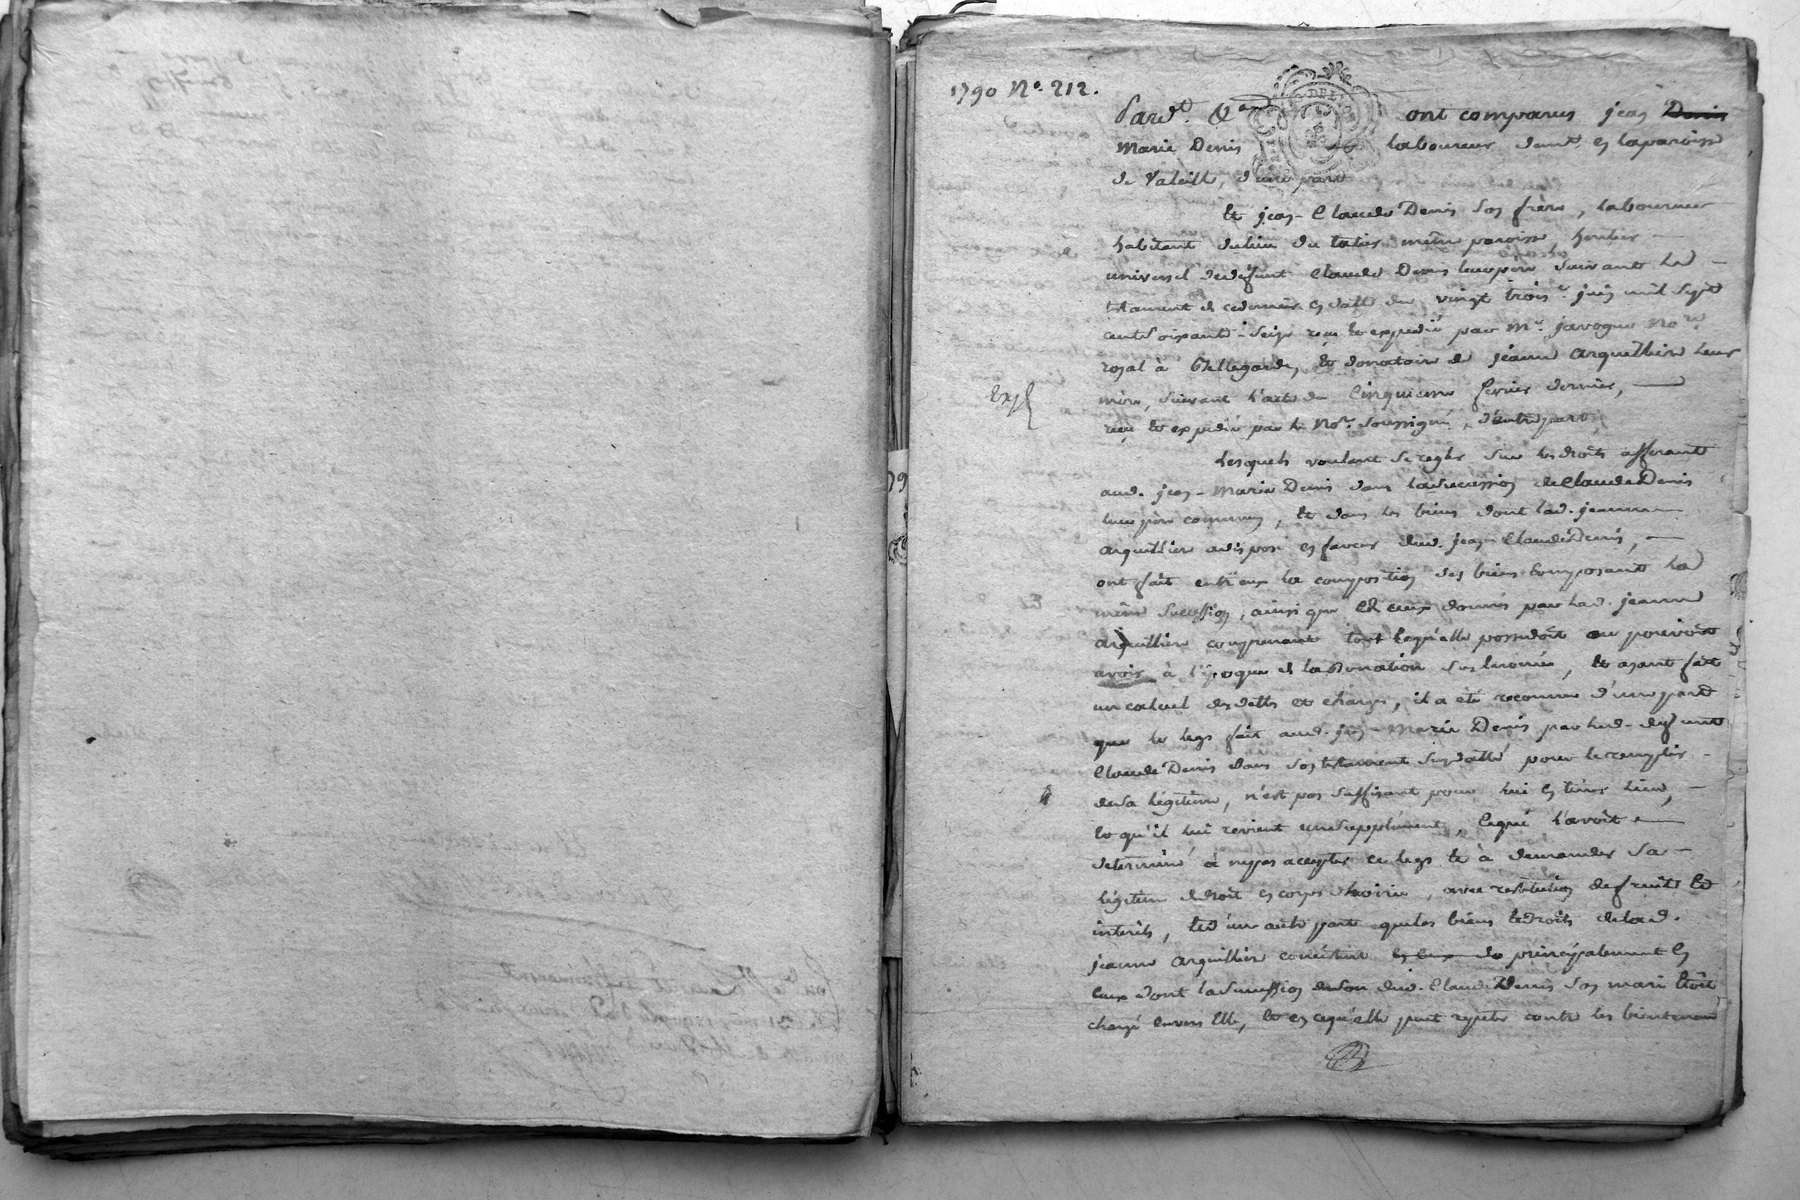 1790 No. 212.
Pard.t &a ont comparus jean Denis
Marie Denis laboureur demt. en la paroisse
de Valeille, d'une part
Et jean-Claude Denis son frère, laboureur
habitant du lieu du même paroisse, heritier
universel du defunt Claude Denis leur pere suivant le
testament de ce dernier en datte du vingt trois.e juin mil sept
cent soixante-seize reçu et expedié par Me. javogue No.re
royal à Bellegarde, et donataire de jeanne arquillier leur
mère, suivant l'acte du cinquieme fevrier dernier,
Exp.
reçu et expedié par le No.re soussigné, d'autre part,
Lesquels voulant se regler sur les droits afferants
aud. jean-Marie Denis dans la succession de Claude Denis
leur père commun, et dans les biens dont lad. jeanne
arquillier a disposé en faveur dud. jean-Claude Denis,
ont fait entr'eux la composition des biens composant la
même succession, ainsi que de ceux donnés par lad. jeanne
arquillier comprenant tout ce qu'elle possedoit ou pouvoit
avoir à l'époque de la donation sus énoncée, et ayant fait
un calcul des dettes et charges, il a été reconnu d'une part
que le legs fait aud. jean-Marie Denis par led. defunt
Claude Denis dans son testament susdatté pour le remplir
de sa légitime, n'est pas suffisant pour lui en tenir lieu,
et qu'il lui revient un supplement, ce qui l'avoit
determiné à ne pas accepter ce legs et à demander sa
légitime de droit en corps heréditaire, avec restitution de fruits et
interêts, et d'une autre part que les biens et droits de lad.
jeanne arquillier consistent principalement en
ceux dont la succession dud. Claude Denis son mari étoit
chargé envers elle, et en ce qu'elle peut repeter contre les